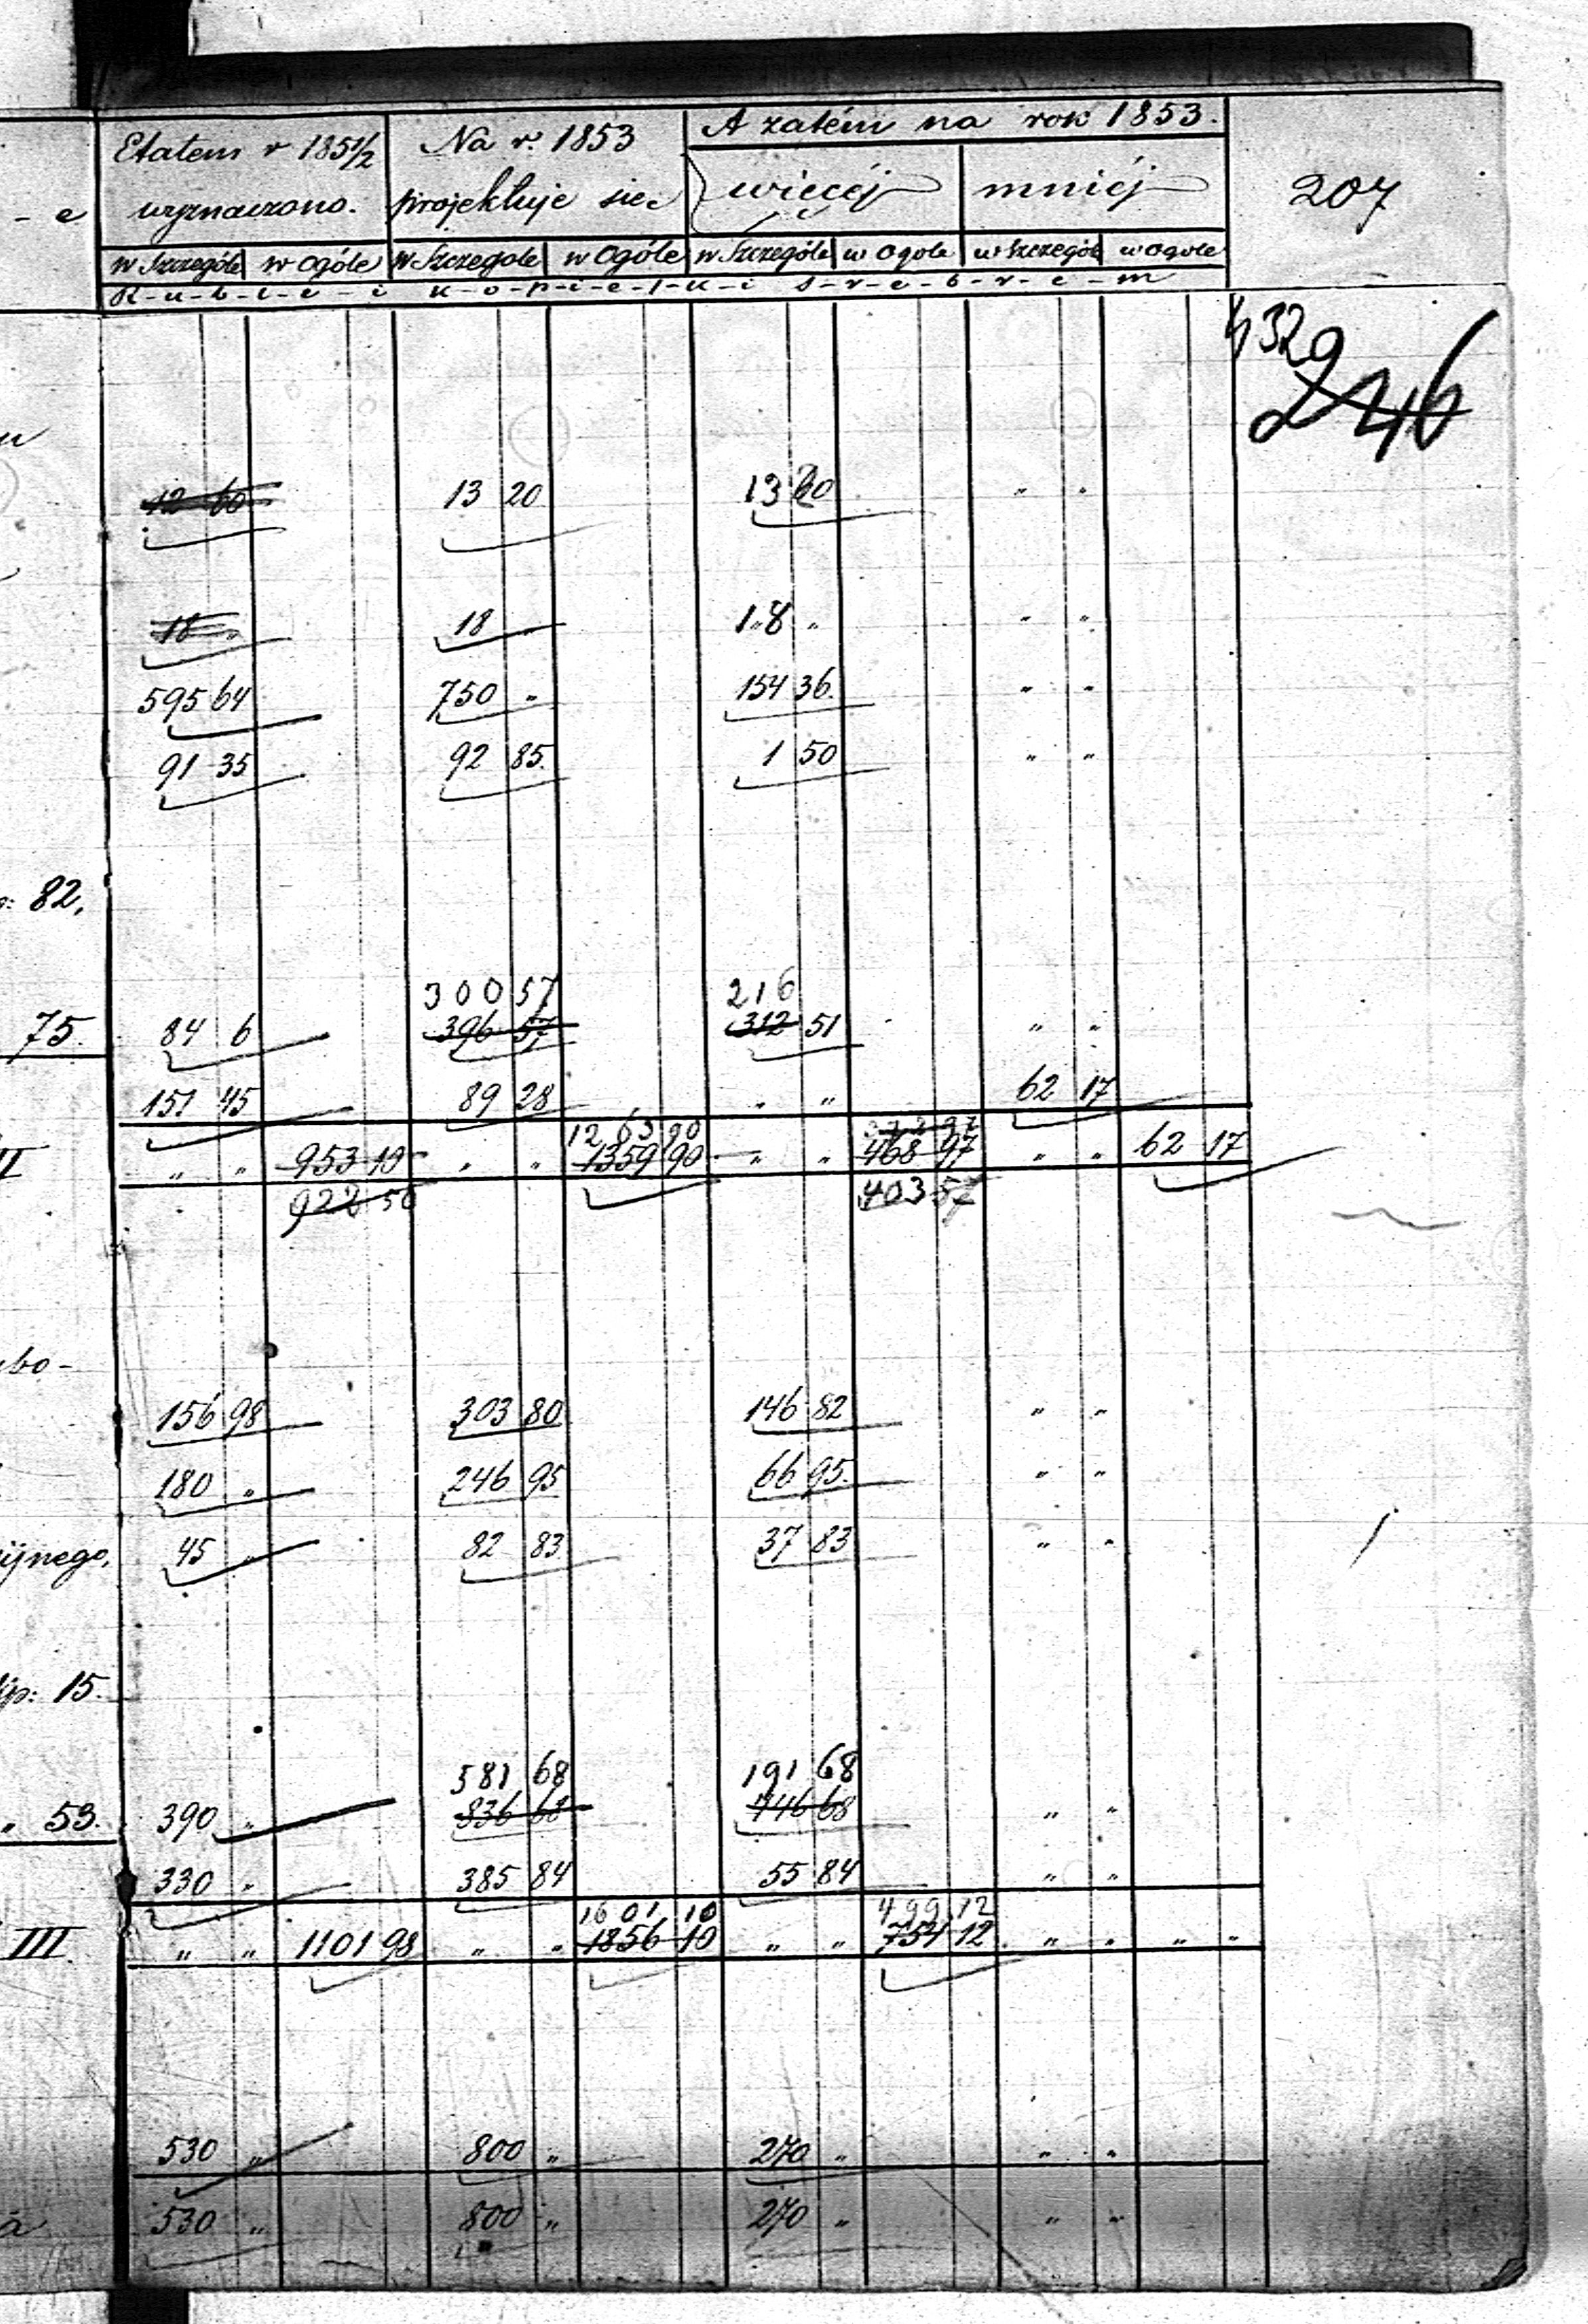 A zatém na rok 1853.
Etatem r 1851/2 Na r. 1853
więcéj mniéj 207
- e wyznaczono. projektuje się
w Szczególe w Ogóle w Szczegole w Ogóle w Szczególe w Ogole w Szczególe w Ogole
R-u-b-l-e i k-o-p-i-e-j-k-i s-r-e-b-r-e-m
329
246
12 60 13 20 13 20 " "
18 " 18 " 18 " " "
595 64 750 " 154 36 " "
91 35 92 85. 1 50 " "
82,
300 57 216
75. 84 6 396 57 312 51 " "
151 45 89 28 " " 62 17
1263 90
II " " 953 10 " " 1359 90 " " 468 97 " " 62 17
922 50 403 57
bo-
156 98 303 80 146 82 " "
180 " 246 95 66 95. " "
ijnego, 45 " 82 83 37 83 " "
yp: 15.
581 68 191 68
" 53. 390 " 836 68 446 68 " "
330 " 385 84 55 84 " "
1601 10 499 12
III. " " 1101 98 " " 1856 10 " " 754 12 " " " "
530 " 800 " 270 " " "
a 530 " 800 " 270 " " "